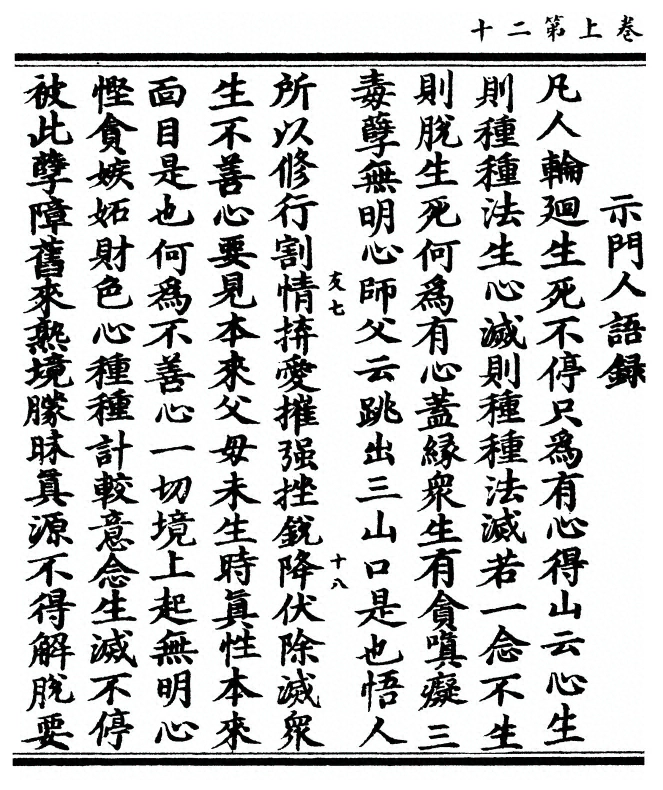 卷上第二十
示門人語録
凡人輪廻生死不停只爲有心得山云心生
則種種法生心滅則種種法滅若一念不生
則脫生死何爲有心蓋縁衆生有貪嗔癡三
毒孽無明心師父云跳出三山口是也悟人
友七
十八
所以修行割情捹愛摧强挫銳降伏除滅衆
生不善心要見本來父母未生時真性本來
面目是也何爲不善心一切境上起無明心
慳貪嫉妬財色心種種計較意念生滅不停
被此孽障舊來熟境朦昧真源不得解脫要